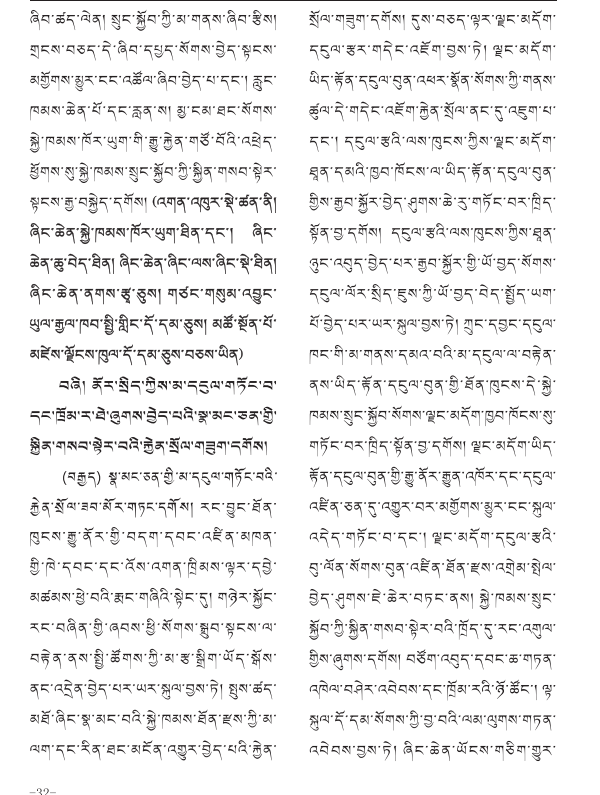 ཞིབ་ཚད་ལེན། སྲུང་སྐྱོབ་ཀྱི་མ་གནས་ཞིབ་རྩིས།
གྲངས་བཅད་དེ་ཞིབ་དཔྱད་སོགས་བྱེད་སྟངས་
མགྱོགས་མྱུར་ངང་འཚོལ་ཞིབ་བྱེད་པ་དང་། རླུང་
ཁམས་ཆེན་པོ་དང་རླན་ས། མྱ་ངམ་ཐང་སོགས་
སྐྱེ་ཁམས་ཁོར་ཡུག་གི་རྒྱུ་རྐྱེན་གཙོ་བོའི་འཕྲེད་
ཕྱོགས་སུ་སྐྱེ་ཁམས་སྲུང་སྐྱོབ་ཀྱི་སྐྱིན་གསབ་སྟེར་
སྟངས་རྒྱ་བསྐྱེད་དགོས། (འགན་འཁུར་སྡེ་ཚན་ནི།
ཞིང་ཆེན་སྐྱེ་ཁམས་ཁོར་ཡུག་ཐིན་དང་། ཞིང་
ཆེན་ཆུ་བེད་ཐིན། ཞིང་ཆེན་ཞིང་ལས་ཞིང་སྡེ་ཐིན།
ཞིང་ཆེན་ནགས་རྩྭ་ཅུས། གཙང་གསུམ་འབྱུང་
ཡུལ་རྒྱལ་ཁབ་སྤྱི་གླིང་དོ་དམ་ཅུས། མཚོ་སྔོན་པོ་
མཛེས་ལྗོངས་ཁུལ་དོ་དམ་ཅུས་བཅས་ཡིན)
བཞི། ནོར་སྲིད་ཀྱིས་མ་དངུལ་གཏོང་བ་
དང་ཁྲོམ་ར་ཐེ་ཞུགས་བྱེད་པའི་སྣ་མང་ཅན་གྱི་
སྐྱིན་གསབ་སྟེར་བའི་རྐྱེན་སྲོལ་གཟུག་དགོས།
(བརྒྱད) སྣ་མང་ཅན་གྱི་མ་དངུལ་གཏོང་བའི་
རྐྱེན་སྲོལ་ཟབ་མོར་གཏང་དགོས། རང་བྱུང་ཐོན་
ཁུངས་རྒྱུ་ནོར་གྱི་བདག་དབང་འཛིན་མཁན་
གྱི་ཁེ་དབང་དང་འོས་འགན་ཁྲིམས་ལྟར་དབྱེ་
མཚམས་ཕྱེ་བའི་རྨང་གཞིའི་སྟེང་དུ། གཉེར་སྐྱོང་
རང་བཞིན་གྱི་ཞབས་ཕྱི་སོགས་སྒྲུབ་སྟངས་ལ་
བརྟེན་ནས་སྤྱི་ཚོགས་ཀྱི་མ་རྩ་སྒྲིག་ཡོད་སྒོས་
ནང་འདྲེན་བྱེད་པར་ཡར་སྐུལ་བྱས་ཏེ། སྤུས་ཚད་
མཐོ་ཞིང་སྣ་མང་བའི་སྐྱེ་ཁམས་ཐོན་རྫས་ཀྱི་མ་
ལག་དང་རིན་ཐང་མངོན་འགྱུར་བྱེད་པའི་རྐྱེན་
སྲོལ་གཟུག་དགོས། དུས་བཅད་ལྟར་ལྗང་མདོག་
དངུལ་རྩར་གདེང་འཇོག་བྱས་ཏེ། ལྗང་མདོག་
ཡིད་རྟོན་དངུལ་བུན་འཕར་སྣོན་སོགས་ཀྱི་གནས་
ཚུལ་དེ་གདེང་འཇོག་རྐྱེན་སྲོལ་ནང་དུ་འཇུག་པ་
དང་། དངུལ་རྩའི་ལས་ཁུངས་ཀྱིས་ལྗང་མདོག་
ཐུན་དམའི་ཁྱབ་ཁོངས་ལ་ཡིད་རྟོན་དངུལ་བུན་
གྱིས་རྒྱབ་སྐྱོར་བྱེད་ཤུགས་ཆེ་རུ་གཏོང་བར་ཁྲིད་
སྟོན་བྱ་དགོས། དངུལ་རྩའི་ལས་ཁུངས་ཀྱིས་ཐུན་
ཉུང་འབུད་བྱེད་པར་རྒྱབ་སྐྱོར་གྱི་ཡོ་བྱད་སོགས་
དངུལ་ལོར་སྲིད་ཇུས་ཀྱི་ཡོ་བྱད་བེད་སྤྱོད་ཡག་
པོ་བྱེད་པར་ཡར་སྐུལ་བྱས་ཏེ། ཀྲུང་དབྱང་དངུལ་
ཁང་གི་མ་གནས་དམའ་བའི་མ་དངུལ་ལ་བརྟེན་
ནས་ཡིད་རྟོན་དངུལ་བུན་གྱི་ཐོན་ཁུངས་དེ་སྐྱེ་
ཁམས་སྲུང་སྐྱོབ་སོགས་ལྗང་མདོག་ཁྱབ་ཁོངས་སུ་
གཏོང་བར་ཁྲིད་སྟོན་བྱ་དགོས། ལྗང་མདོག་ཡིད་
རྟོན་དངུལ་བུན་གྱི་རྒྱུ་ནོར་རྒྱུན་འཁོར་དང་དངུལ་
འཛིན་ཅན་དུ་འགྱུར་བར་མགྱོགས་མྱུར་ངང་སྐུལ་
འདེད་གཏོང་བ་དང་། ལྗང་མདོག་དངུལ་རྩའི་
བུ་ལོན་སོགས་བུན་འཛིན་ཐོན་རྫས་འགྲེམ་སྤེལ་
བྱེད་ཤུགས་ཇེ་ཆེར་བཏང་ནས། སྐྱེ་ཁམས་སྲུང་
སྐྱོབ་ཀྱི་སྐྱིན་གསབ་སྟེར་བའི་ཁྲོད་དུ་རང་འགུལ་
གྱིས་ཞུགས་དགོས། བཙོག་འབུད་དབང་ཆ་གཏན་
འཁེལ་བཤེར་འབེབས་དང་ཁྲོམ་རའི་ཉོ་ཚོང་། ལྟ་
སྐུལ་དོ་དམ་སོགས་ཀྱི་བྱ་བའི་ལམ་ལུགས་གཏན་
འབེབས་བྱས་ཏེ། ཞིང་ཆེན་ཡོངས་གཅིག་གྱུར་
-32-